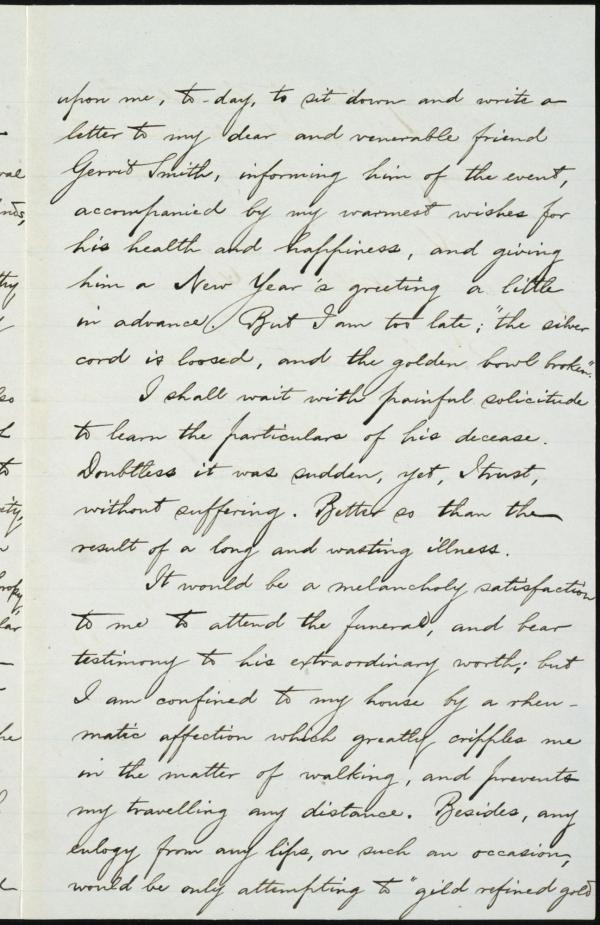 upon me, to-day, to sit down and write a
letter to my dear and venerable friend
Gerrit Smith, informing him of the event,
accompanied by my warmest wishes for
his health and happiness, and giving
him a New Year's greeting a little
in advance. But I am too late; "the silver
cord is loosed, and the golden bowl broken".
I shall wait with painful solicitude
to learn the particulars of his decease.
Doubtless it was sudden, yet, I trust,
without suffering. Better so than the
result of a long and wasting illness.
It would be a melancholy satisfaction
to me to attend the funeral, and bear
testimony to his extraordinary worth; but
I am confined to my house by a rheu-
matic affection which greatly cripples me
in the matter of walking, and prevents
my travelling any distance. Besides, any
eulogy from any lips, on such an occasion,
would be only attempting to "gild refined gold